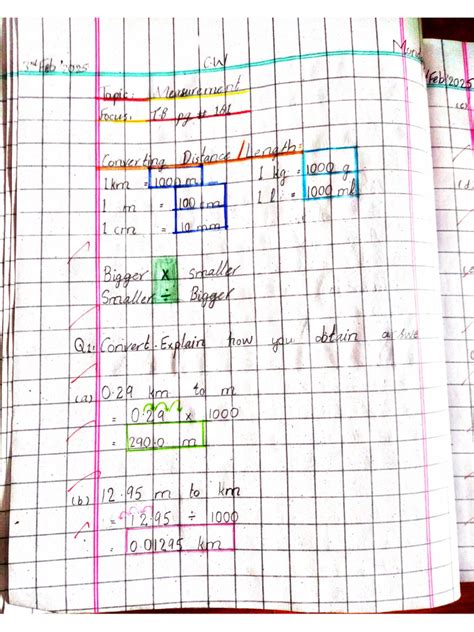 3rd Feb'2025
CW
Mond
Topic: Measurement
Focus:
Converting Distance/Length:
1 km = 1000 m
1 kg = 1000 g
1 m = 100 cm
1 l = 1000 ml
1 cm = 10 mm
Bigger x smaller
Smaller ÷ Bigger
Q1: Convert. Explain how you obtain answe
(a) 0.29 km to m
= 0.29 x 1000
= 290.0 m
(b) 12.95 m to km
= 12.95 ÷ 1000
= 0.01295 km
Feb'2025
(c)
(d